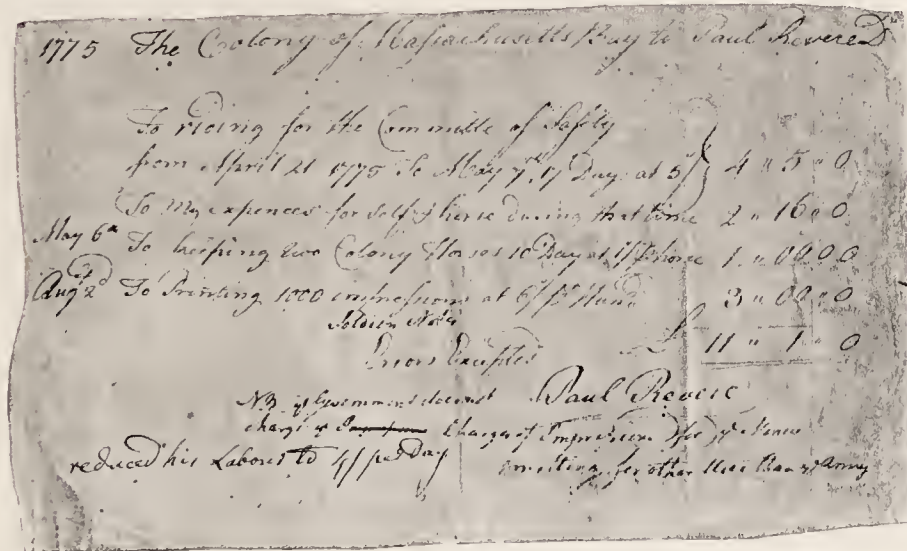 1775 The Colony of Massachusetts Bay to Paul Revere Dr
To riding for the Committe of Safety
from April 21 1775 To May 7th, 17 Day at 5/ 4 " 5 " 0
To My expences for self & horse during that time 2 " 16 " 0
May 6th To keeping two Colony Horses 10 Day at 1/ pr horse 1 " 00 " 0
Augt 2d To Printing 1000 impressions at 6/ pr Hund 3 " 00 " 0
Soldiers Notes
Errors Excepted £ 11 " 1 " 0
Paul Revere
NB Government does not
charge of Charge of
reduced his Labour to 4/ per Day
Emitting for other than Army